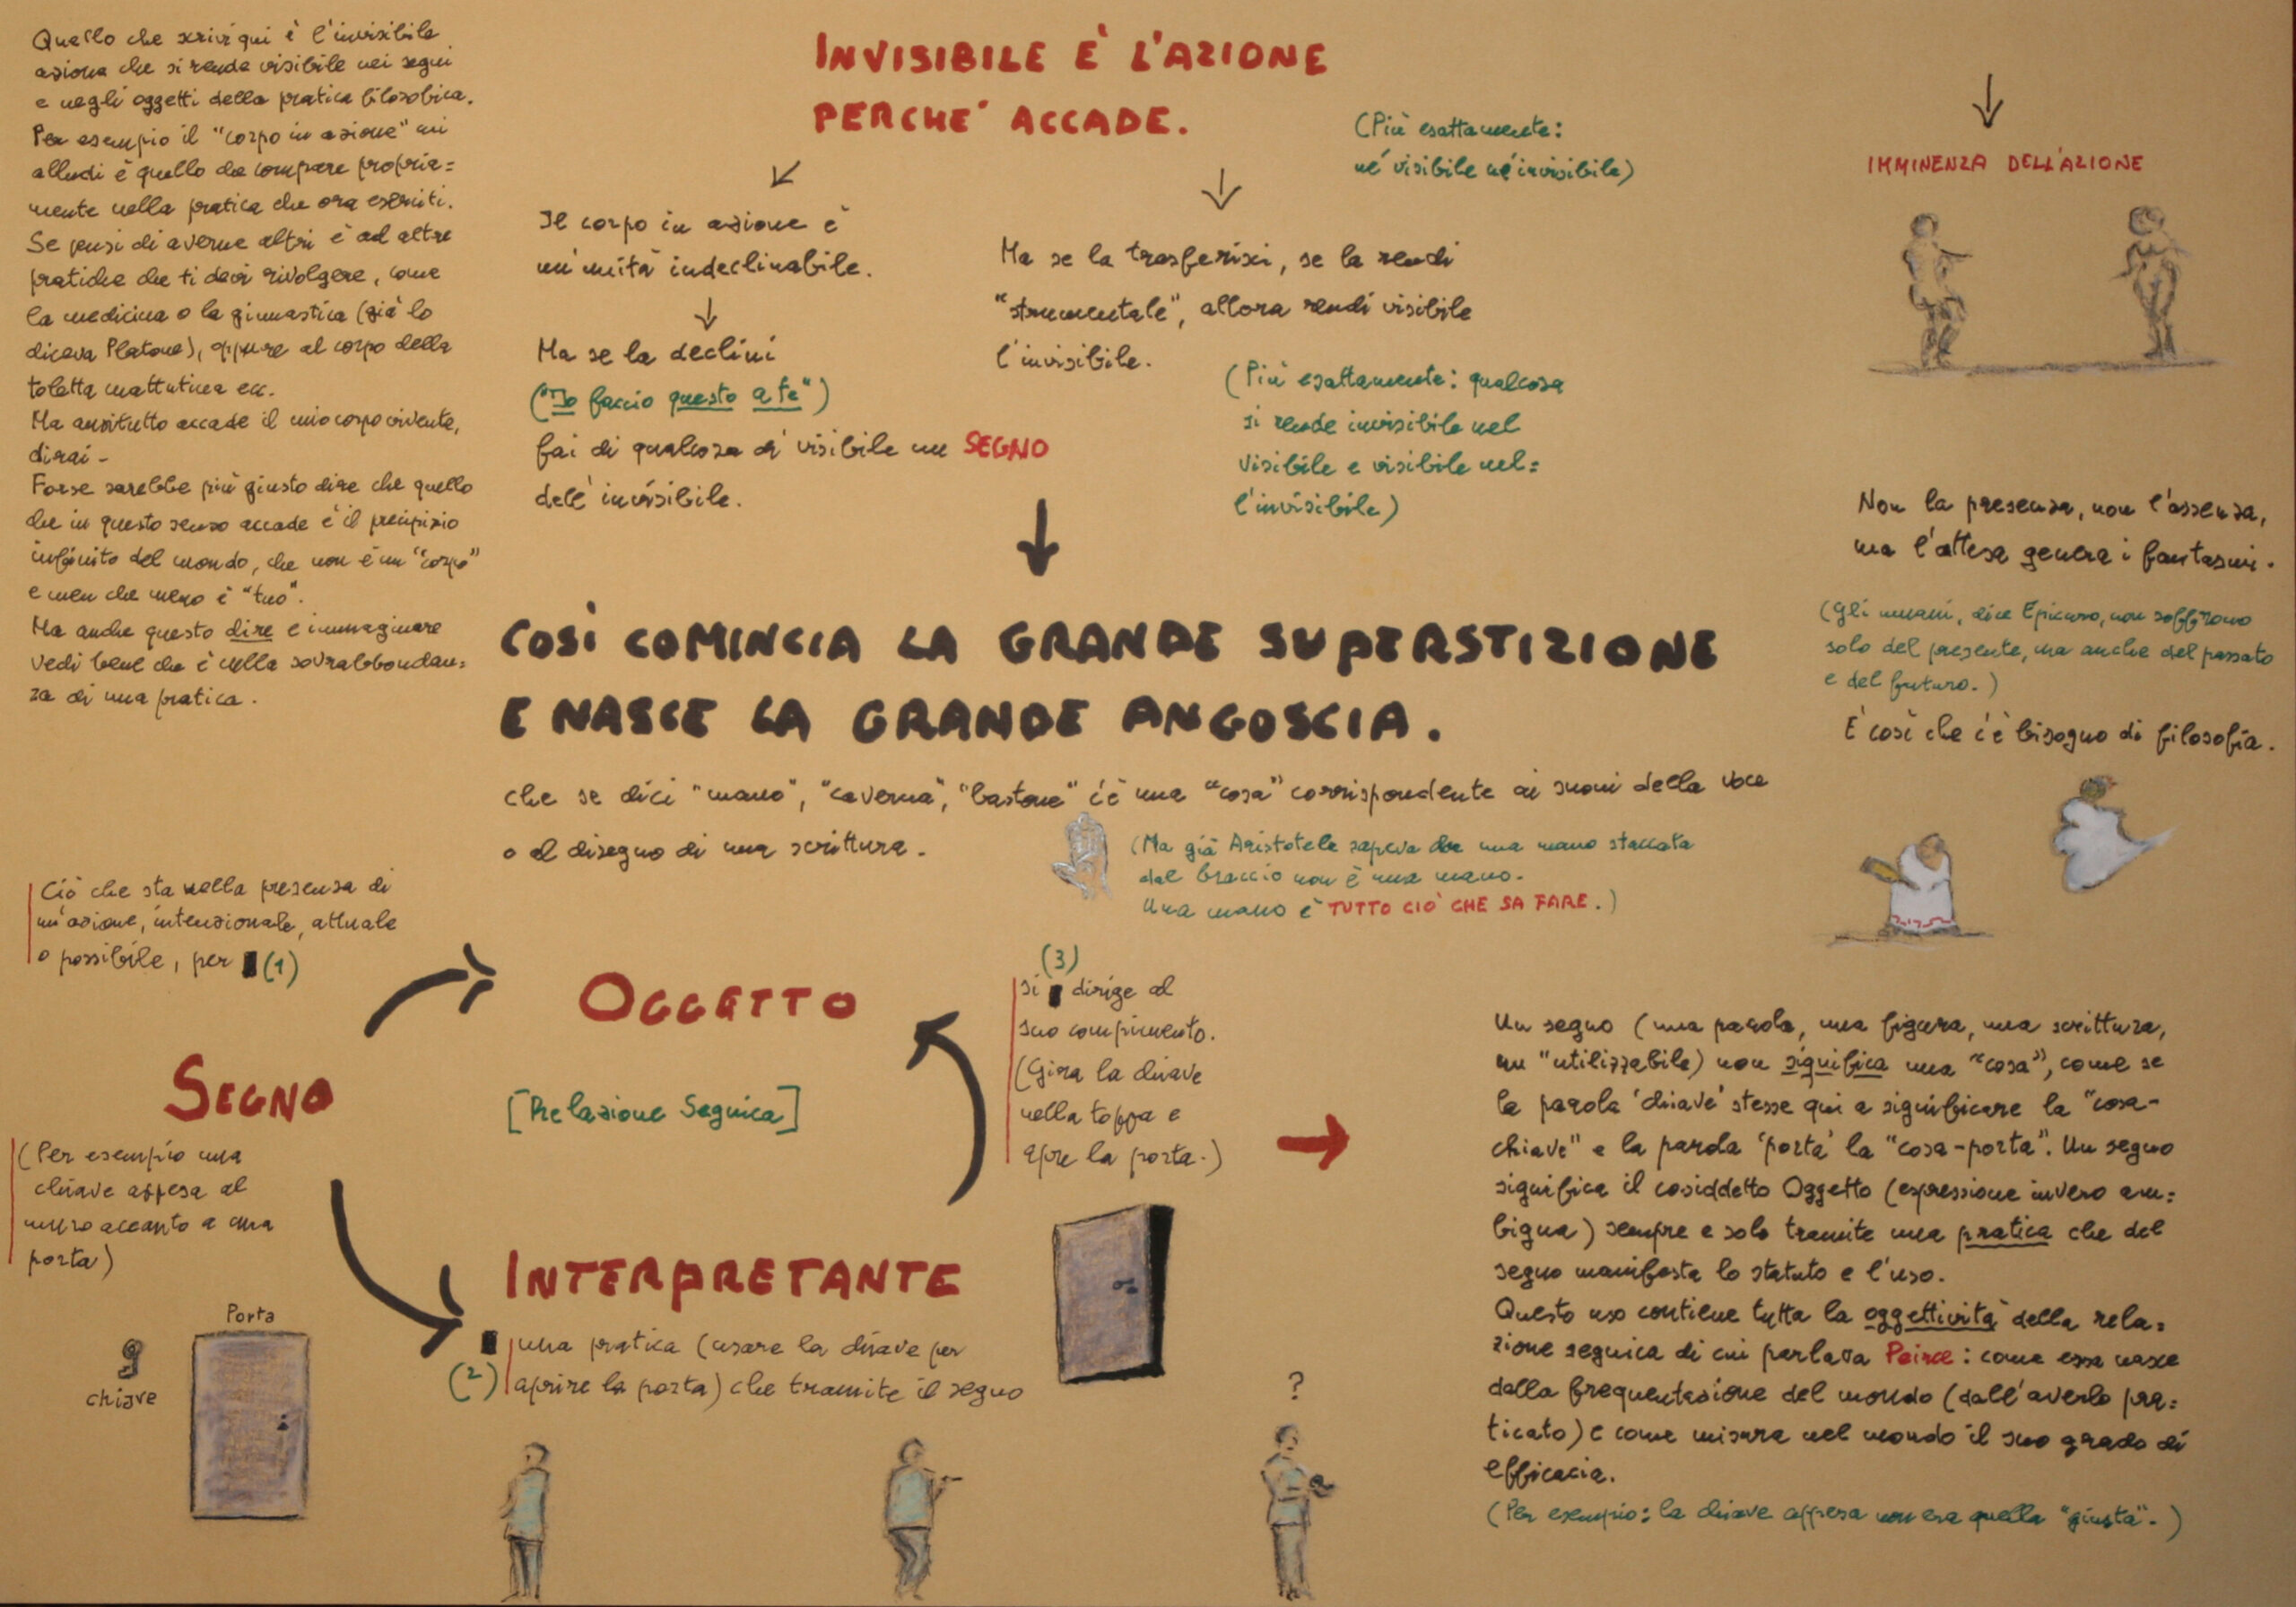 Quello che scrivi qui è l'invisibile
azione che si rende visibile nei segni
e negli oggetti della pratica filosofica.
Per esempio il "corpo in azione" cui
alludi è quello che compare propria=
mente nella pratica che ora eserciti.
Se pensi di averne altri è ad altre
pratiche che ti devi rivolgere, come
la medicina o la ginnastica (già lo
diceva Platone), oppure al corpo della
toletta mattutina ecc.
Ma anzitutto accade il mio corpo vivente,
dirai -
Forse sarebbe più giusto dire che quello
che in questo senso accade è il precipizio
infinito del mondo, che non è un "corpo"
e men che meno è "tuo".
Ma anche questo dire e immaginare
vedi bene che è nella sovrabbondan=
za di una pratica.
INVISIBILE È L'AZIONE
PERCHE' ACCADE.
(Più esattamente:
né visibile né invisibile)
Il corpo in azione è
un'unità indeclinabile.
Ma se la declini
("Io faccio questo a te")
fai di qualcosa di visibile un SEGNO
dell'invisibile.
Ma se la trasferisci, se la rendi
"strumentale", allora rendi visibile
l'invisibile.
(Più esattamente: qualcosa
si rende invisibile nel
visibile e visibile nel=
l'invisibile)
IMMINENZA DELL'AZIONE
Non la presenza, non l'assenza,
ma l'attesa genera i fantasmi.
(Gli umani, dice Epicuro, non soffrono
solo del presente, ma anche del passato
e del futuro.)
È così che c'è bisogno di filosofia.
COSÌ COMINCIA LA GRANDE SUPERSTIZIONE
E NASCE LA GRANDE ANGOSCIA.
che se dici "mano", "caverna", "bastone" c'è una "cosa" corrispondente ai suoni della voce
o al disegno di una scrittura.
(Ma già Aristotele sapeva che una mano staccata
dal braccio non è una mano.
Una mano è TUTTO CIÒ CHE SA FARE.)
Ciò che sta nella presenza di
un'azione, intenzionale, attuale
o possibile, per (1)
SEGNO
(Per esempio una
chiave appesa al
muro accanto a una
porta)
Porta
chiave
OGGETTO
[Relazione Segnica]
INTERPRETANTE
una pratica (usare la chiave per
(2) aprire la porta) che tramite il segno
(3)
si dirige al
suo compimento.
(Gira la chiave
nella toppa e
apre la porta.)
?
Un segno (una parola, una figura, una scrittura,
un "utilizzabile) non significa una "cosa", come se
la parola 'chiave' stesse qui a significare la "cosa-
chiave" e la parola 'porta' la "cosa-porta". Un segno
significa il cosiddetto Oggetto (espressione invero am=
bigua) sempre e solo tramite una pratica che del
segno manifesta lo statuto e l'uso.
Questo uso contiene tutta la oggettività della rela=
zione segnica di cui parlava Peirce: come essa nasce
dalla frequentazione del mondo (dall'averlo pra=
ticato) e come misura nel mondo il suo grado di
efficacia.
(Per esempio: la chiave appesa non era quella "giusta".)